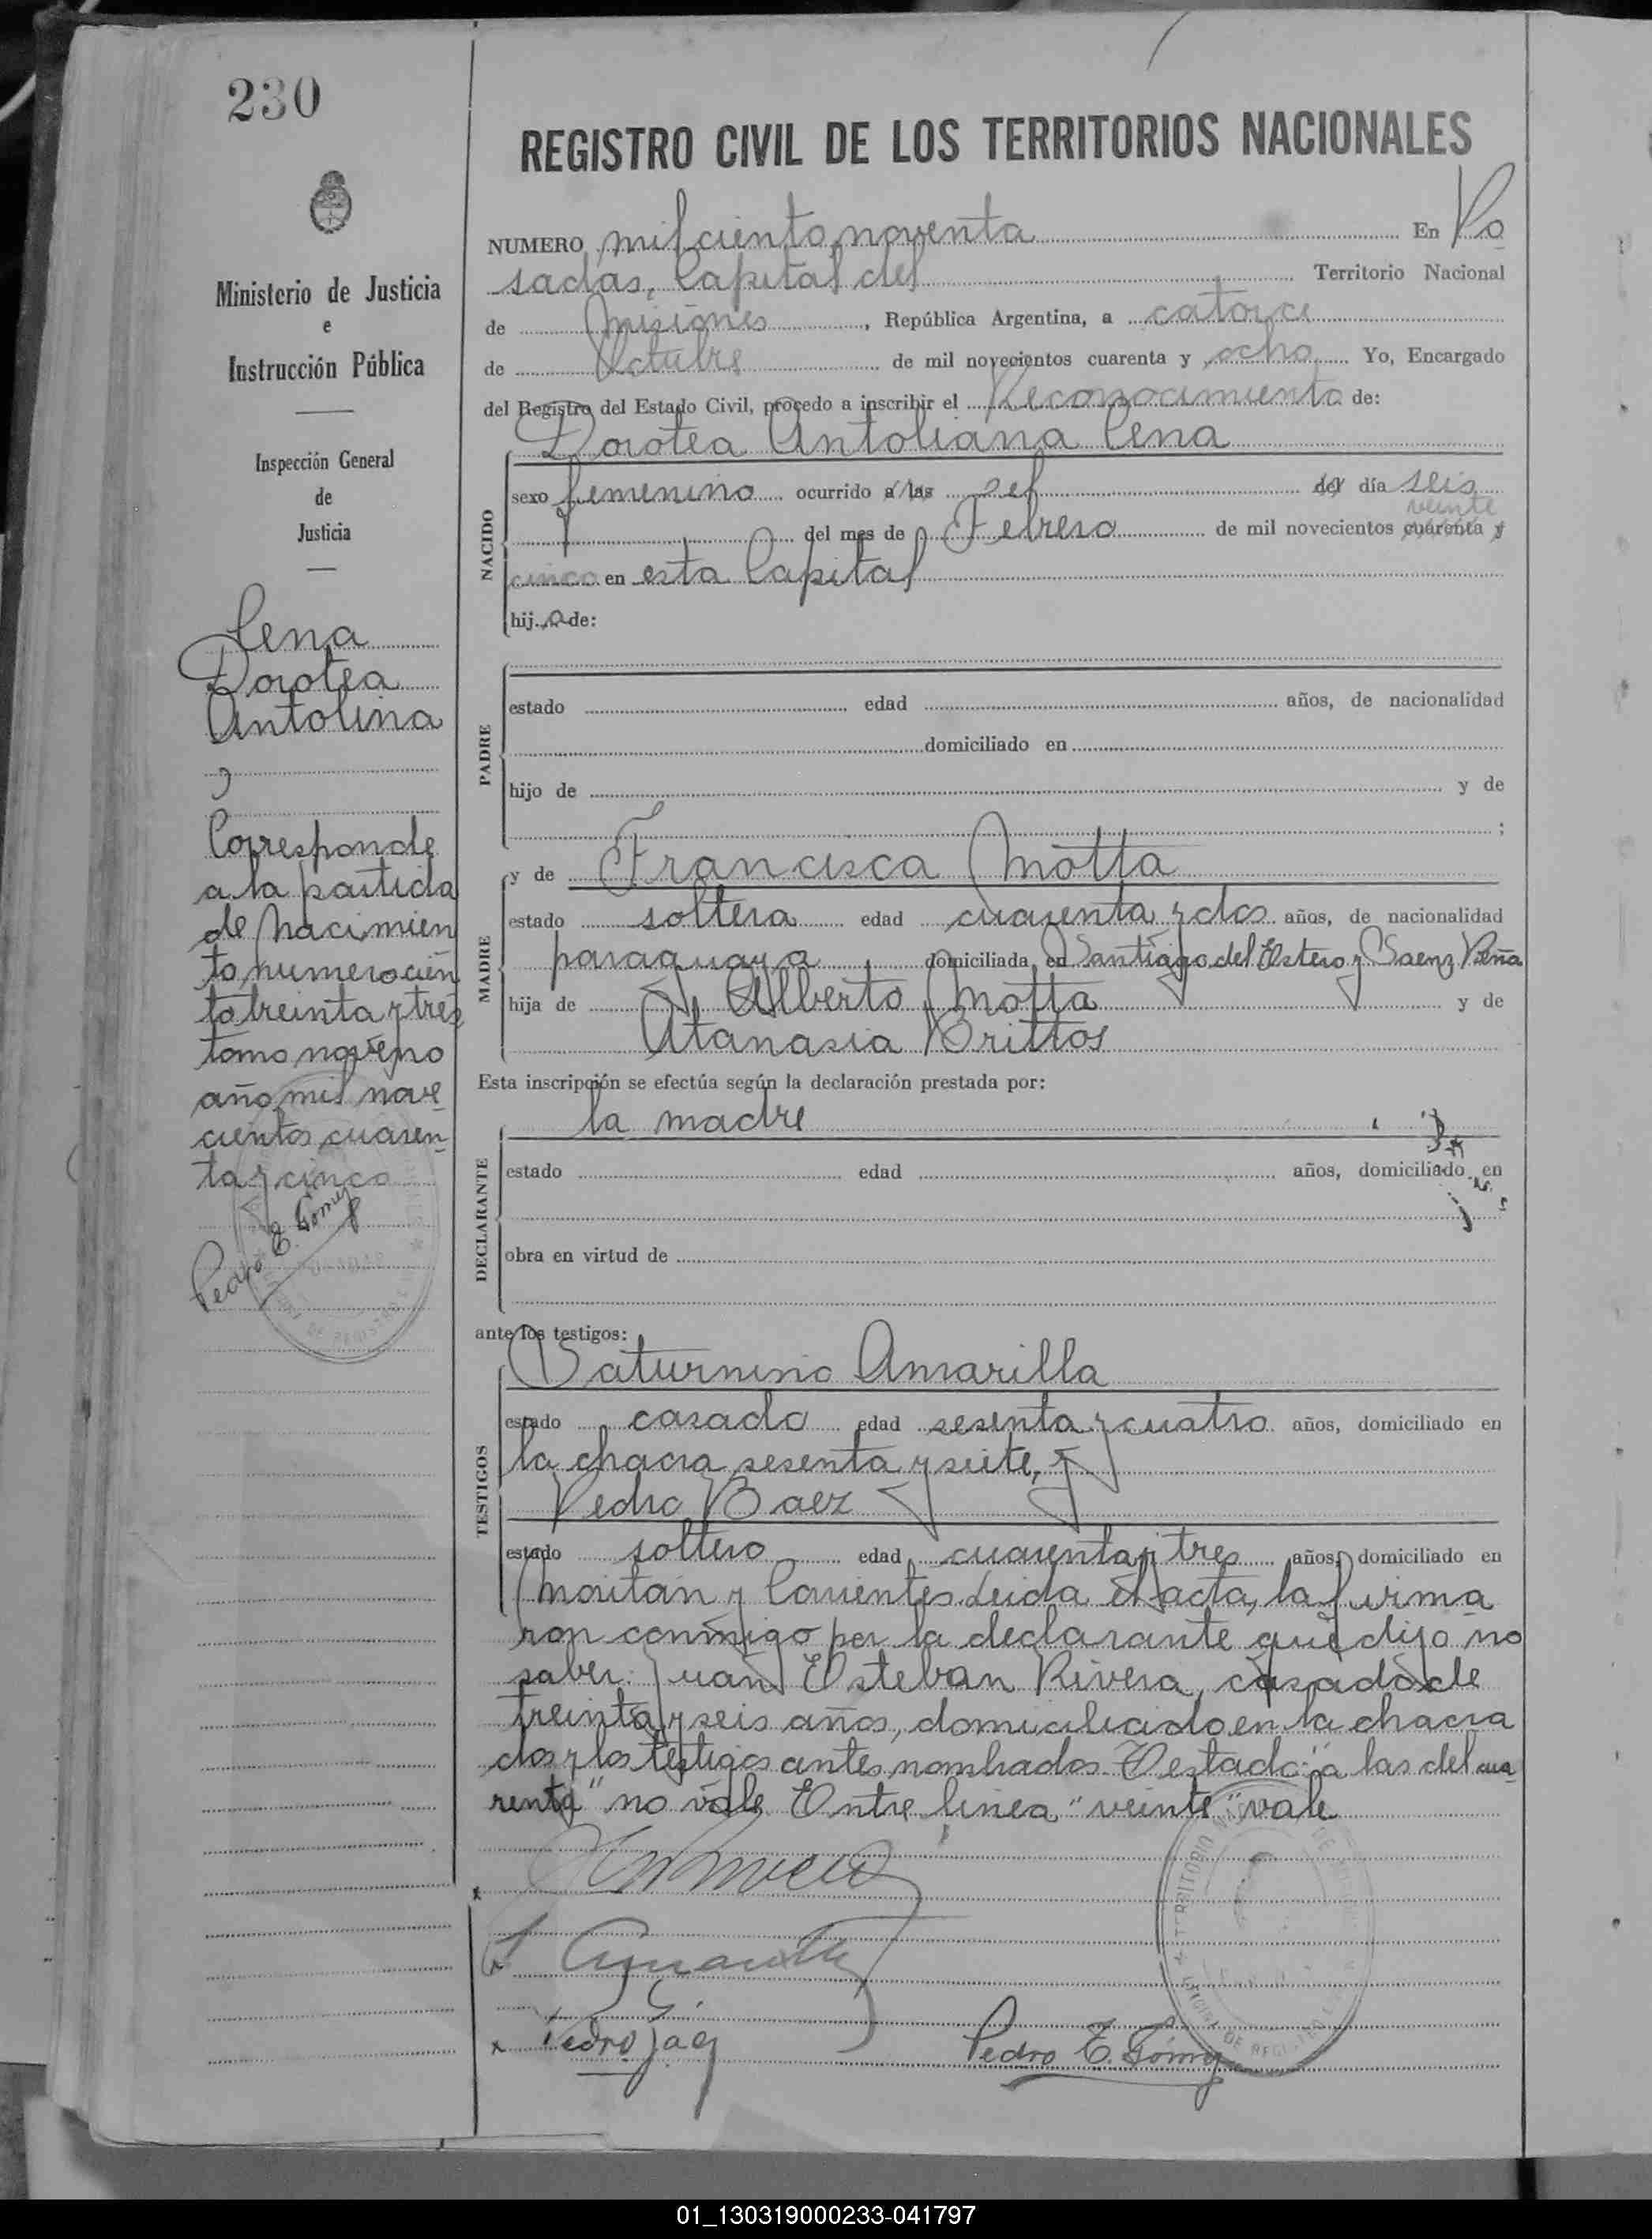 230
Ministerio de Justicia
e
Instrucción Pública
Inspección General
de
Justicia
Cena
Dorotea
Antolina
Corresponde
a la partida
de Nacimien
to numero cien
to treinta y tres
tomo noveno
año mil nove
cientos cuaren
ta y cinco
Pedro E. Gómez
REGISTRO CIVIL DE LOS TERRITORIOS NACIONALES
NUMERO mil ciento noventa En Po
sadas, Capital del Territorio Nacional
de Misiones, República Argentina, a catorce
de Octubre de mil novecientos cuarenta y ocho Yo, Encargado
del Registro del Estado Civil, procedo a inscribir el Reconocimiento de:
Dorotea Antoliana Cena
NACIDO
sexo femenino ocurrido a las el del día seis
veinte
del mes de Febrero de mil novecientos cuarenta y
cinco en esta Capital
hija de:
PADRE
estado edad años, de nacionalidad
domiciliado en
hijo de y de
;
MADRE
y de Francisca Motta
estado soltera edad cuarenta y dos años, de nacionalidad
paraguaya domiciliada en Santiago del Estero y Saenz Peña
hija de Alberto Motta y de
Atanasia Brittos
Esta inscripción se efectúa según la declaración prestada por:
DECLARANTE
la madre
estado edad años, domiciliado en
obra en virtud de
ante los testigos:
TESTIGOS
Saturnino Amarilla
estado casado edad sesenta y cuatro años, domiciliado en
la chacra sesenta y siete, y
Pedro Baez
estado soltero edad cuarenta y tres años, domiciliado en
Moritan y Corrientes. Leida el acta, la firma
ron conmigo por la declarante que dijo no
saber: Juan Esteban Rivera, casado de
treinta y seis años, domiciliado en la chacra
dos y los testigos antes nombrados. Testado: "a las del cua
renta" no vale. Entre linea "veinte" vale
Pedro E. Gómez
01_130319000233-041797